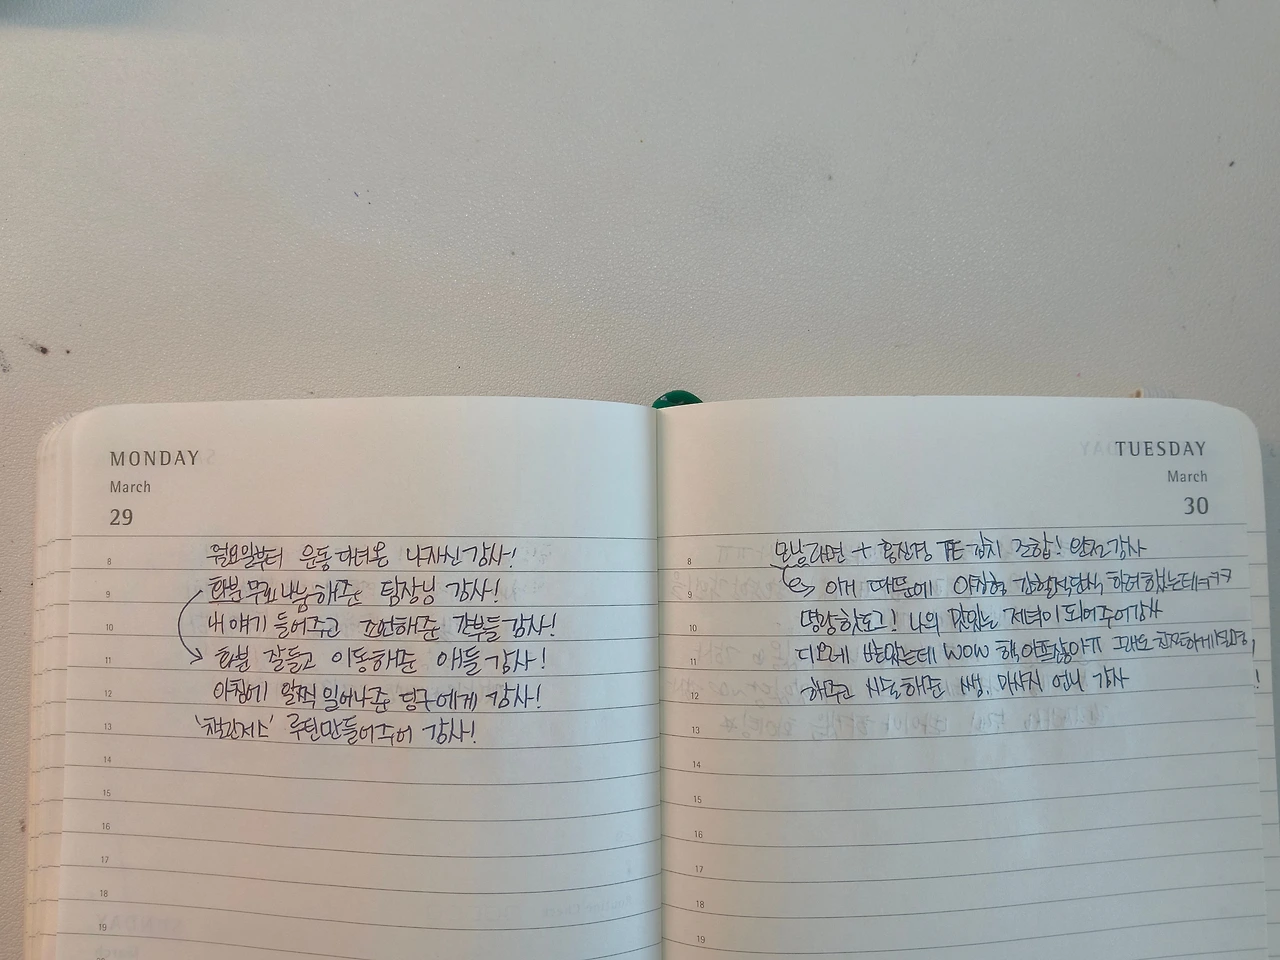 MONDAY
March
29
8 월요일부터 운동 다녀온 나자신 감사!
9 화분 무료나눔 해준 팀장님 감사!
10 내 얘기 들어주고 조언해준 간부들 감사!
11 화분 잘들고 이동해준 애들 감사!
12 아침에 일찍 일어나준 덩구에게 감사!
13 루틴만들어주어 감사!
14
15
16
17
18
19
TUESDAY
March
30
8 모닝라면 + 홍진경 THE 김치 조합! 완전감사
9 이게 때문에 간헐적단식 하려했는데ㅋㅋㅋ
10 명랑핫도그! 나의 맛있는 저녁이 되어주어 감사
11 받았는데 WOW 핵아프잖아ㅠ 그래도 친절하게
12 해주고 시도해준 쌤. 마사지 언니 감사!
13
14
15
16
17
18
19